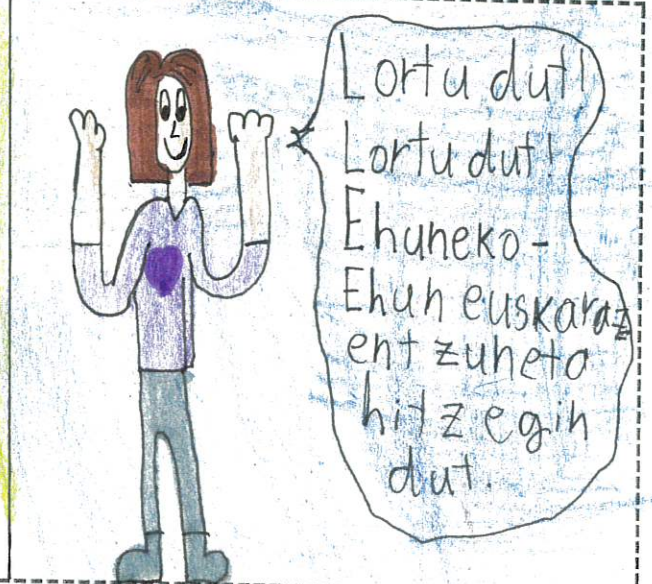 Lortu dut!
Lortu dut!
Ehuneko-
Ehun euskaraz
entzuneta
hitz egin
dut.